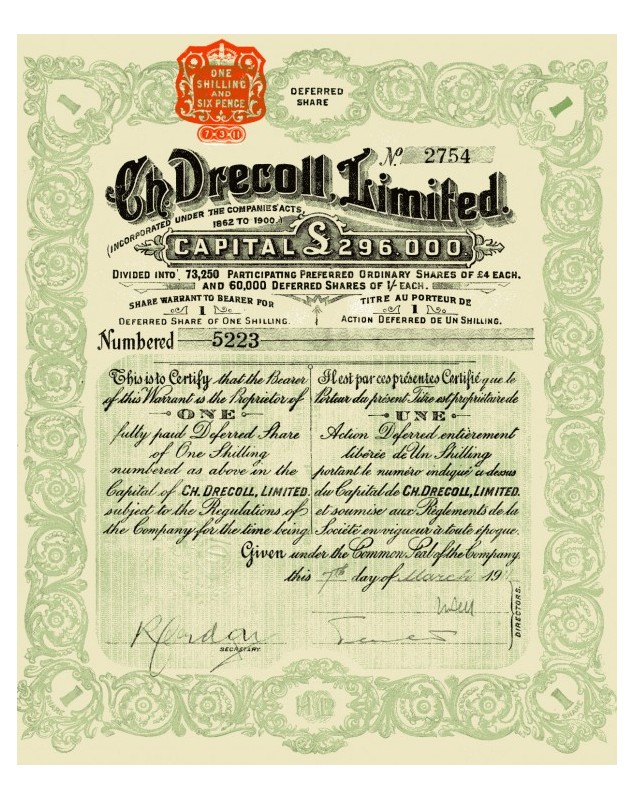 ONE
SHILLING
AND
SIX PENCE
7·3·11
DEFERRED
SHARE
1
1
No. 2754
Ch. Drecoll, Limited.
(INCORPORATED UNDER THE COMPANIES' ACTS, 1862 TO 1900.)
CAPITAL £296.000.
DIVIDED INTO 73,250 PARTICIPATING PREFERRED ORDINARY SHARES OF £4 EACH.
AND 60,000 DEFERRED SHARES OF 1/- EACH.
SHARE WARRANT TO BEARER FOR
1
DEFERRED SHARE OF ONE SHILLING.
TITRE AU PORTEUR DE
1
ACTION DEFERRED DE UN SHILLING.
Numbered 5223
This is to Certify that the Bearer
of this Warrant is the Proprietor of
ONE
fully paid Deferred Share
of One Shilling
numbered as above in the
Capital of CH. DRECOLL, LIMITED.
subject to the Regulations of
the Company for the time being.
Il est par ces présentes Certifié que le
Porteur du présent Titre est propriétaire de
UNE
Action Deferred entièrement
libérée de Un Shilling
portant le numéro indiqué ci-dessus
du Capital de CH. DRECOLL, LIMITED.
et soumise aux Réglements de la
Société en vigueur à toute époque.
Given under the Common Seal of the Company,
this 7th day of March 19
DIRECTORS.
SECRETARY.
1
SHARE
1
SHARE